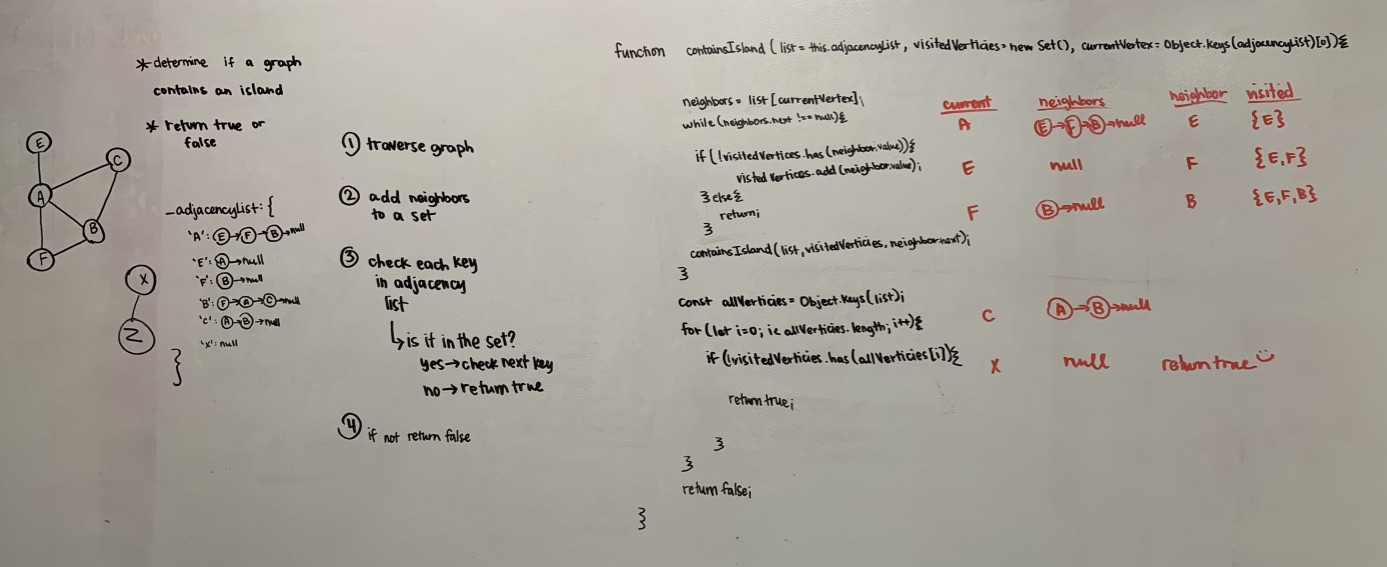 * determine if a graph
contains an island
* return true or
false
E
C
A
B
F
X
Z
_adjacencyList: {
'A': E→F→B→null
'E': A→null
'F': B→null
'B': F→A→C→null
'C': A→B→null
'X': null
}
① traverse graph
② add neighbors
to a set
③ check each key
in adjacency
list
↳ is it in the set?
yes→check next key
no→return true
④ if not return false
function containsIsland (list = this.adjacencyList, visitedVerticies = new Set(), currentVertex = Object.keys(adjacencyList)[0]){
neighbors = list [currentVertex];
while (neighbors.next !== null){
if (!visitedVertices.has (neighbor.value)){
visted Vertices.add (neighbor.value);
} else {
return;
}
containsIsland (list, visitedVerticies, neighbor.next);
}
const allVerticies = Object.keys(list);
for (let i=0; i< allVerticies.length; i++){
if (!visitedVerticies.has (allVerticies[i]){
return true;
}
}
return false;
}
current neighbors neighbor visited
A E→F→B→null E {E}
E null F {E,F}
F B→null B {E,F,B}
C A→B→null
X null return true